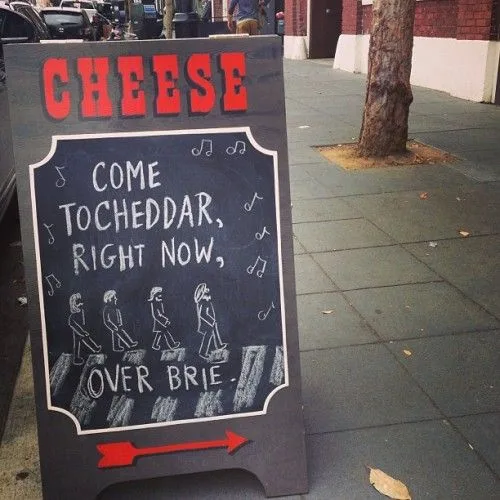 CHEESE
COME
TOCHEDDAR,
RIGHT NOW,
OVER BRIE.